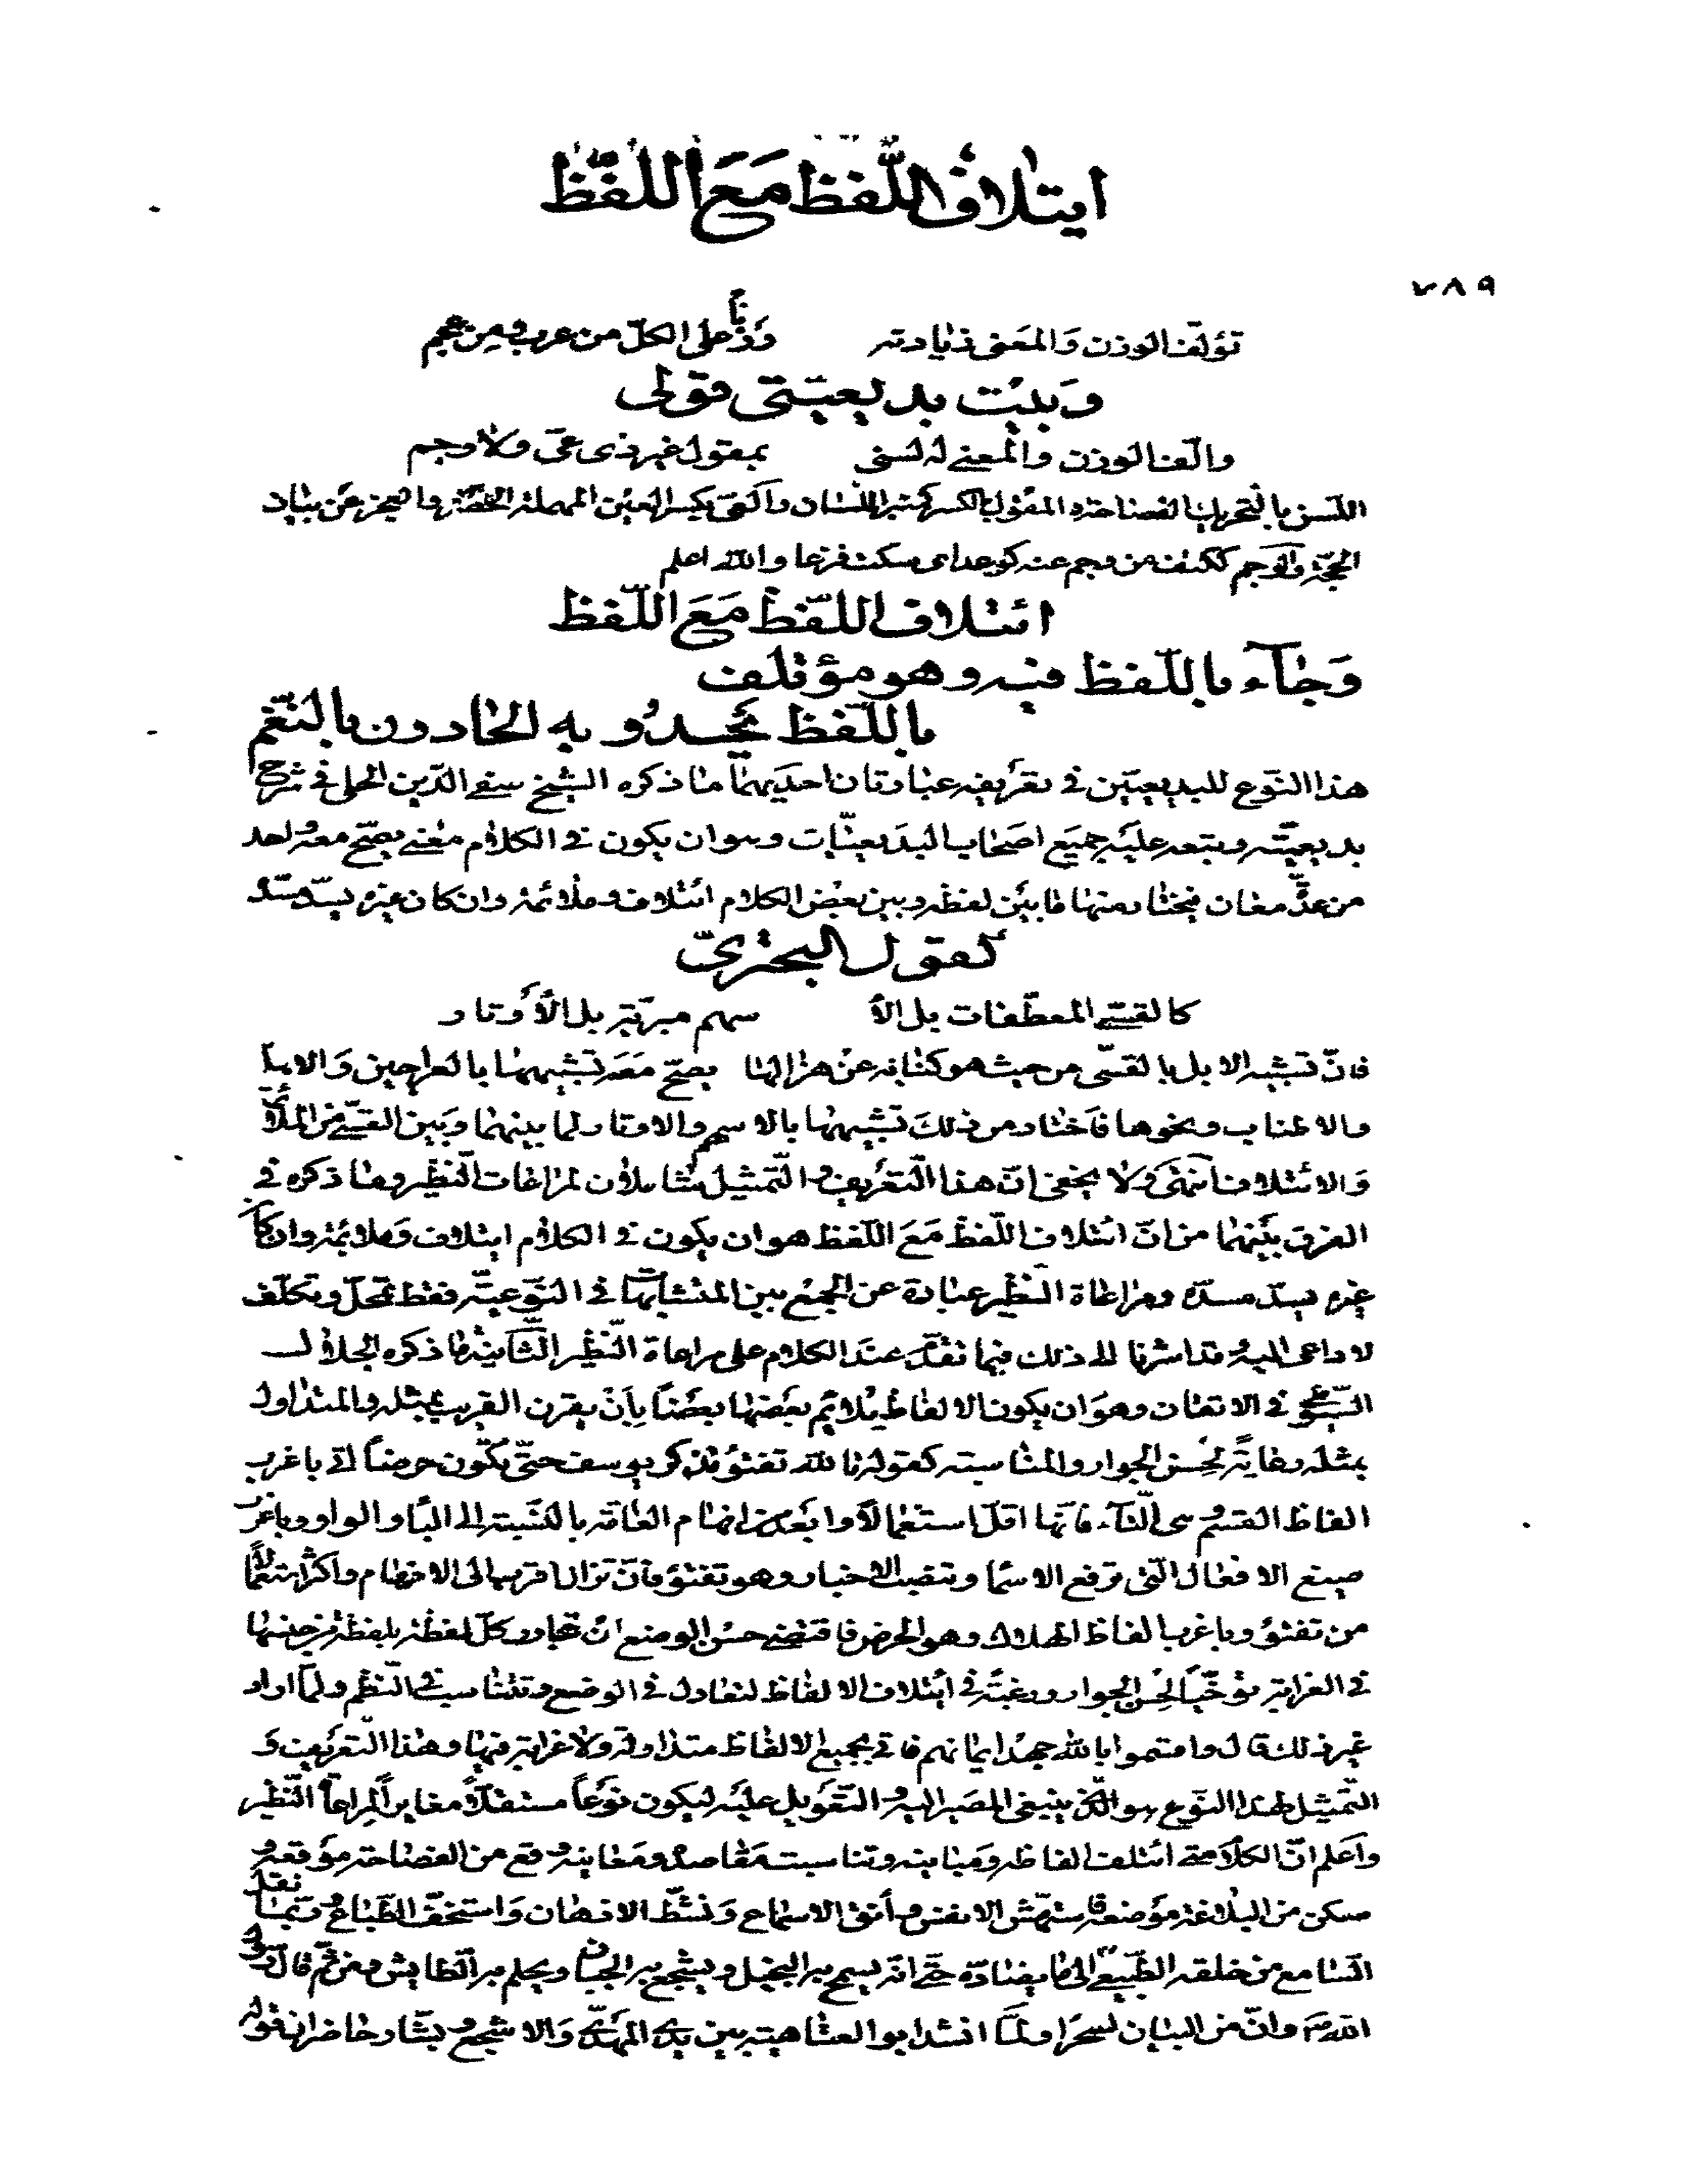 ايتلاف اللفظ مع اللفظ
٧٨٩
تؤلف الوزن والمعنى زيادته وزنا على الكل من عرب ومن عجم
وبيت بديعيتي قولي
وألف الوزن والمعنى له لسنى بمقول غير ذي عى ولا وجم
اللسن بالتحريك الفصاحة والمقول بالكسر كمنبر اللسان والعى بكسر العين المهملة الحصر والعجز عن بيان
الحجة والوجم ككتف من وجم عنه كوعد اى سكت فزعا والله اعلم
ائتلاف اللفظ مع اللفظ
وجآء باللفظ فيه وهو مؤتلف
باللفظ يحدو به الحادون بالنغم
هذا النوع للبديعيين في تعريفه عبارتان احديهما ما ذكره الشيخ صفي الدين الحلي في شرح
بديعيته وتبعه عليه جميع اصحاب البديعيات وهو ان يكون في الكلام معنى يصح معه واحد
من عدة معان فيختار منها ما بين لفظه وبين بعض الكلام ائتلاف وملائمة وان كان غيره يسد مسده
كقول البحتري
كالقسي المعطفات بل الأ سهم مبرية بل الأوتار
فان تشبيه الابل بالقسى من حيث هو كناية عن هزالها يصح معه تشبيهها بالعراجين والاهلة
والاطناب ونحوها فاختار من ذلك تشبيهها بالاسهم والاوتار لما بينهما وبين القسي من الملائمة
والائتلاف انتهى ولا يخفى ان هذا التعريف والتمثيل شاملان لمراعات النظير وما ذكره في
الفرق بينهما من ان ائتلاف اللفظ مع اللفظ هو ان يكون في الكلام ايتلاف وملائمة وان كان
غيره يسد مسده ومراعاة النظير عبارة عن الجمع بين المتشابهات في النوعية فقط تمحل وتكلف
لا داعى اليه وقد اشرنا الى ذلك فيما تقدم عند الكلام على مراعاة النظير الثانية ما ذكره الجلال
السيوطي في الاتقان وهو ان يكون الالفاظ يلائم بعضها بعضا بأن يقرن الغريب بمثله والمتداول
بمثله رعاية لحسن الجوار والمناسبة كقوله تالله تفتؤ تذكر يوسف حتى تكون حرضا اتى باغرب
الفاظ القسم وهى التآء فانها اقل استعمالا وابعد من افهام العامة بالنسبة الى البآء والواو وباغرب
صيغ الافعال التى ترفع الاسماء وتنصب الاخبار وهو تفتؤ فان تزال اقرب الى الافهام واكثر استعمالا
من تفتؤ وباغرب الفاظ الهلاك وهو الحرض فاقتضى حسن الوضع ان تجاور كل لفظة بلفظة من جنسها
في الغرابة توخيا لحسن الجوار ورغبة في ايتلاف الالفاظ لتعادل في الوضع وتتناسب في النظم ولما اراد
غير ذلك قال واقسموا بالله جهد ايمانهم فاتى بجميع الالفاظ متداولة ولا غرابة فيها وهذا التعريف و
التمثيل لهذا النوع هو الذي ينبغى المصير اليه والتعويل عليه ليكون نوعا مستقلا مغايرا لمراعاة النظير
واعلم ان الكلام متى ائتلفت الفاظه ومبانيه وتناسبت مقاصده ومعانيه وقع من الفصاحة موقعه و
سكن من البلاغة موضعه فاستهش الانفس وأنق الاسماع ونشط الاذهان واستخف الطباع وربما نقل
السامع من خلقه الطبيعي الى ما يضاده حتى انه يسمح به البخيل ويشجع به الجبان ويحلم به الطايش ومن ثم قال رسول
الله ص وان من البيان لسحرا ولما انشد ابو العتاهية بين يدي المهدي والاشجع وبشار حاضران قوله